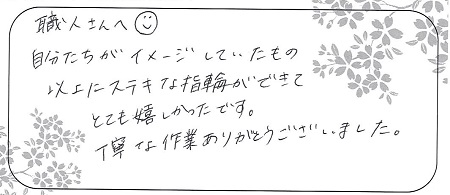 職人さんへ☺
自分たちがイメージしていたもの
以上にステキな指輪ができて
とても嬉しかったです。
丁寧な作業ありがとうございました。